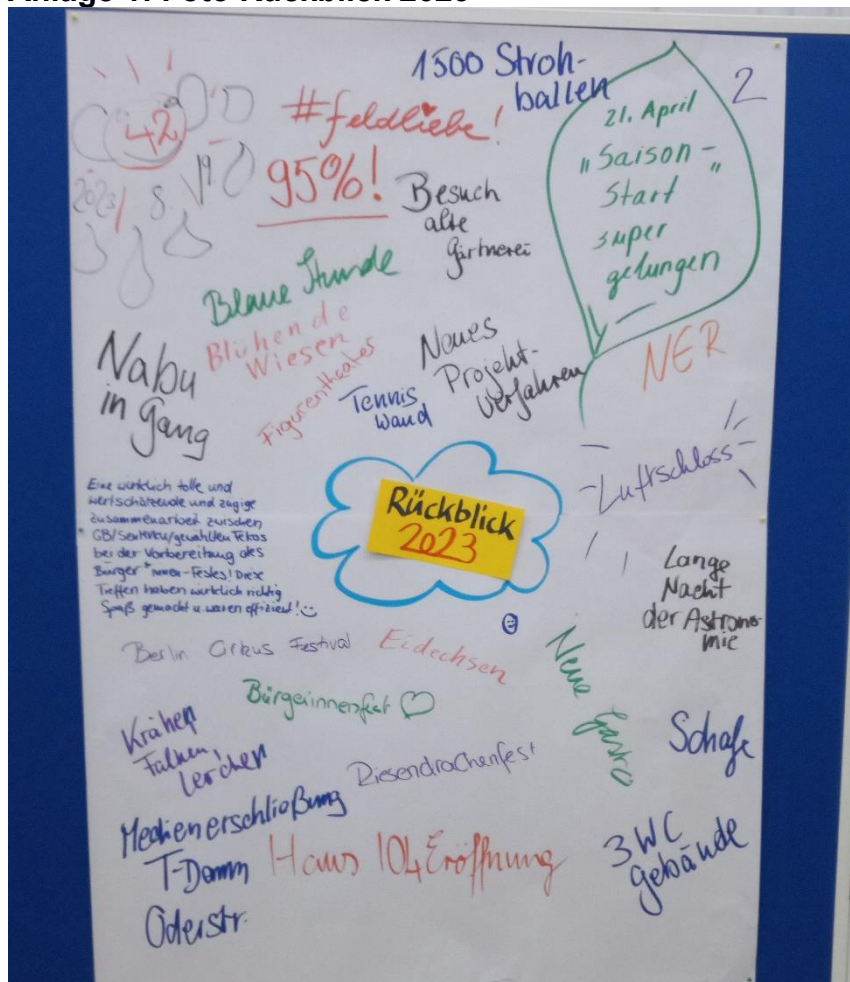 1500 Stroh-
ballen
42
#feldliebe!
95%!
2
21. April
"Saison-"
Start
super
gelungen
2023 8 19
Besuch
alte
Gärtnerei
Blaue Stunde
Blühende
Wiesen
Figurentheater
Nabu
in Gang
Tennis
wand
Neues
Projekt-
verfahren
NER
Luftschloss
Eine wirklich tolle und
wertschätzende und zügige
Zusammenarbeit zwischen
GB/SenMVKU/gewählten Fekos
bei der Vorbereitung des
Bürger*innen-Festes! Diese
Treffen haben wirklich richtig
Spaß gemacht u. waren effizient!
Rückblick
2023
Lange
Nacht
der Astrono-
mie
Berlin Cirkus Festival
Eidechsen
Neue Gastro
Bürgerinnenfest
Krähen
Falken,
Lerchen
Riesendrachenfest
Schafe
Medienerschließung
T-Damm
Oderstr.
Haus 104 Eröffnung
3 WC
Gebäude